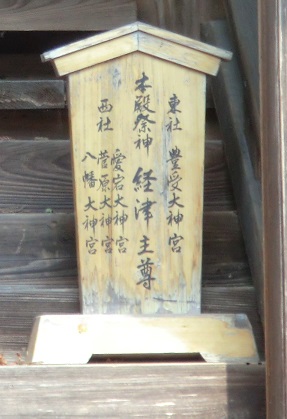 東社 豊受大神宮
本殿祭神 経津主尊
西社 愛宕大神宮
菅原大神宮
八幡大神宮